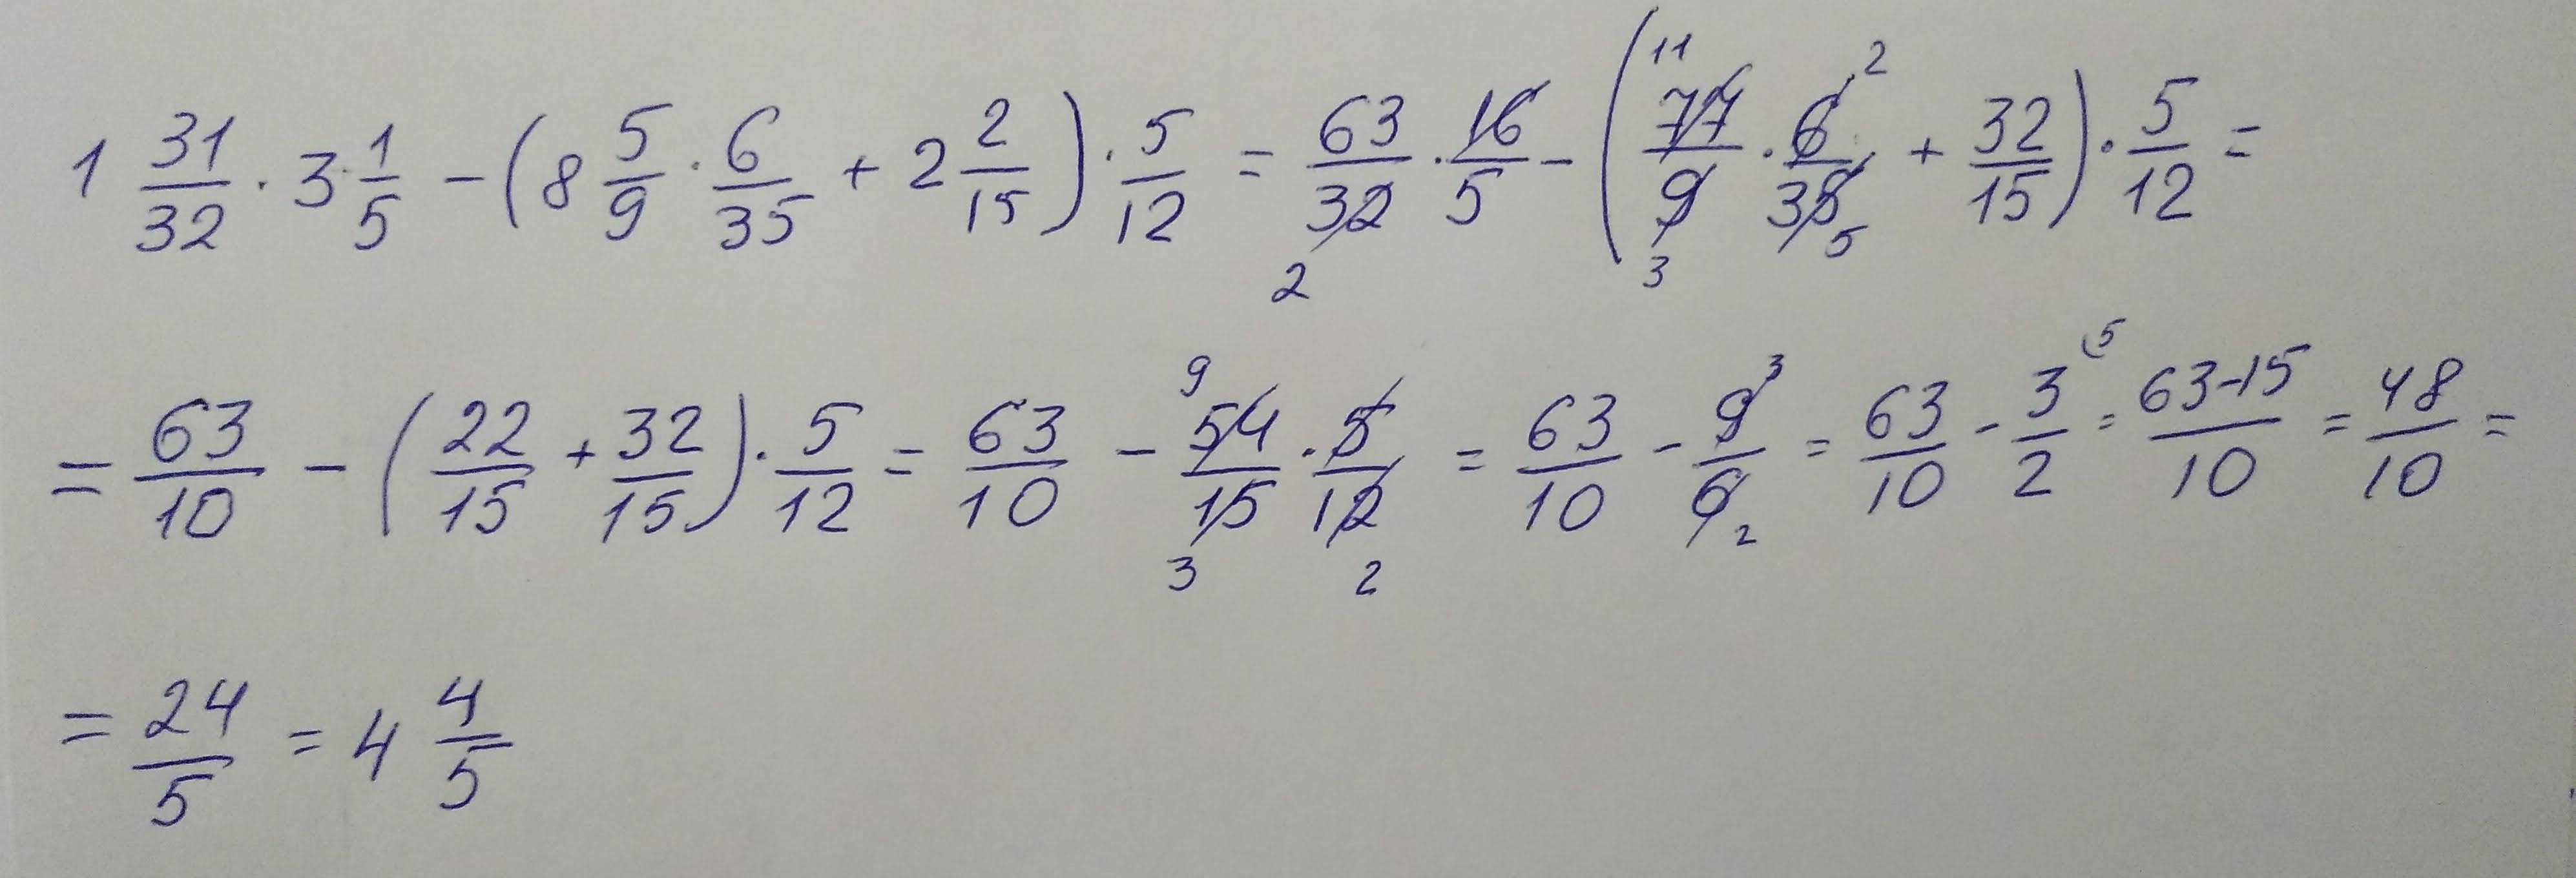 1 31/32 · 3 1/5 − (8 5/9 · 6/35 + 2 2/15) · 5/12 = 63/32 2 · 16/5 − (77 11/9 3 · 6 2/35 5 + 32/15) · 5/12 =
= 63/10 − (22/15 + 32/15) · 5/12 = 63/10 − 54 9/15 3 · 5/12 2 = 63/10 − 9 3/6 2 = 63/10 − 3/2 (5 = 63−15/10 = 48/10 =
= 24/5 = 4 4/5